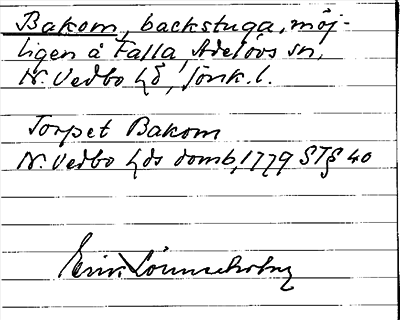 Bakom, backstuga, möj-
ligen å Falla, Adelövs sn,
N. Vedbo hd, Jönk. l.
Torpet Bakom
N. Vedbo hds domb, 1779 ST § 40
Erik Lönnerholm